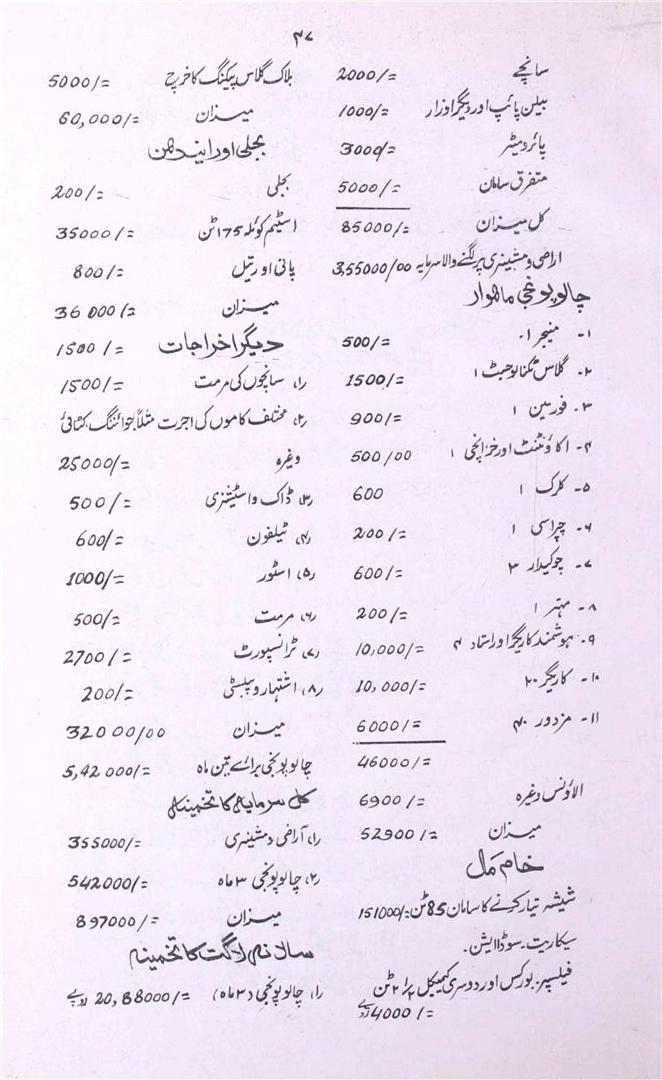 ۳۷
سانچے 2000/=
بیلن پائپ اور دیگر اوزار 1000/=
پائرومیٹر 3000/=
متفرق سامان 5000/=
کل میزان 85000/=
اراضی و مشینری پر لگنے والا سرمایہ 3,55000/00
چالو پونجی ماہوار
۱۔ منیجر ۱۔ 500/=
۲۔ گلاس ٹکنالوجسٹ ۱ 1500/=
۳۔ فورمین ۱ 900/=
۴۔ اکاؤنٹنٹ اور خزانچی ۱ 500/00
۵۔ کلرک ۱ 600
۶۔ چپراسی ۱ 200/=
۷۔ چوکیدار ۳ 600/=
۸۔ مہتر ۱ 200/=
۹۔ ہوشمند کاریگر اور استاد ۴ 10,000/=
۱۰۔ کاریگر ۲۰ 10,000/=
۱۱۔ مزدور ۴۰ 6000/=
46000/=
الاؤنس وغیرہ 6900/=
میزان 52900/=
خام مال
شیشہ تیار کرنے کا سامان 85 ٹن 151000/=
سیکاریت۔ سوڈا ایش۔
فیلسپر۔ بورکس اور دوسری کیمیکل ۲ ٹن
4000/= روپے
بلاک گلاس پیکنگ کا خرچ 5000/=
میزان 60,000/=
بجلی اور ایندھن
بجلی 200/=
اسٹیم کوئلہ 175 ٹن 35000/=
پانی اور تیل 800/=
میزان 36000/=
دیگر اخراجات 1500/=
(۱) سانچوں کی مرمت 1500/=
(۲) مختلف کاموں کی اجرت مثلاً جوائننگ، کٹائی
وغیرہ 25000/=
(۳) ڈاک و اسٹیشنری 500/=
(۴) ٹیلفون 600/=
(۵) اسٹور 1000/=
(۶) مرمت 500/=
(۷) ٹرانسپورٹ 2700/=
(۸) اشتہار و پبلسٹی 200/=
میزان 32000/00
چالو پونجی برائے تین ماہ 5,42000/=
کل سرمایہ کا تخمینہ
(۱) آراضی و مشینری 355000/=
(۲) چالو پونجی ۳ ماہ 542000/=
میزان 897000/=
سالانہ لاگت کا تخمینہ
(۱) چالو پونجی (۳ ماہ) 20,88000/= روپے